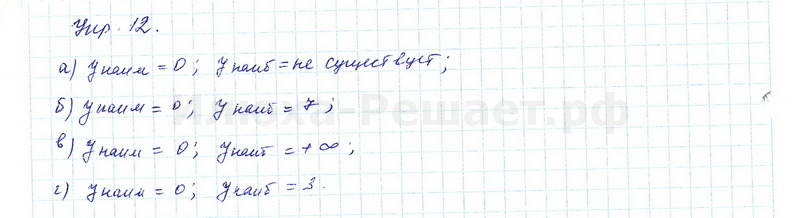 Упр. 12.
а) yнаим = 0; yнаиб = не существует;
б) yнаим = 0; yнаиб = 7;
в) yнаим = 0; yнаиб = +∞;
г) yнаим = 0; yнаиб = 3.
Илюха-Решает.рф